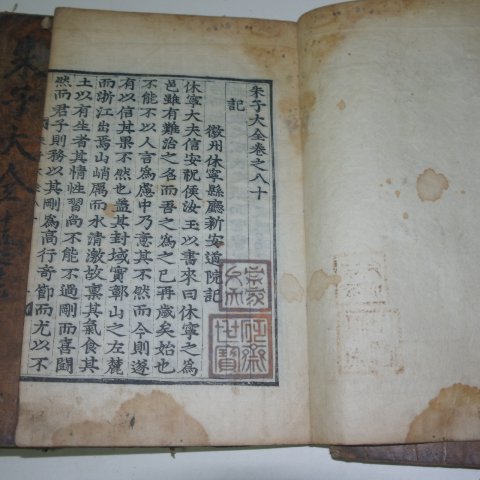 朱子大全卷之八十
記
徽州休寧縣廳新安道院記
休寧大夫信安祝侯汝玉以書來曰休寧之爲
邑雖有難治之名而吾之爲之已再歲矣始也
不能不以人言爲慮中乃意其不然而今則遂
有以信其果不然也蓋其封域實鄣山之左麓
而浙江出焉山峭厲而水清激故禀其氣食其
土以有生者其情性習尚不能不過剛而喜鬪
然而君子則務以其剛爲高行奇節而尤以不
朱子大全